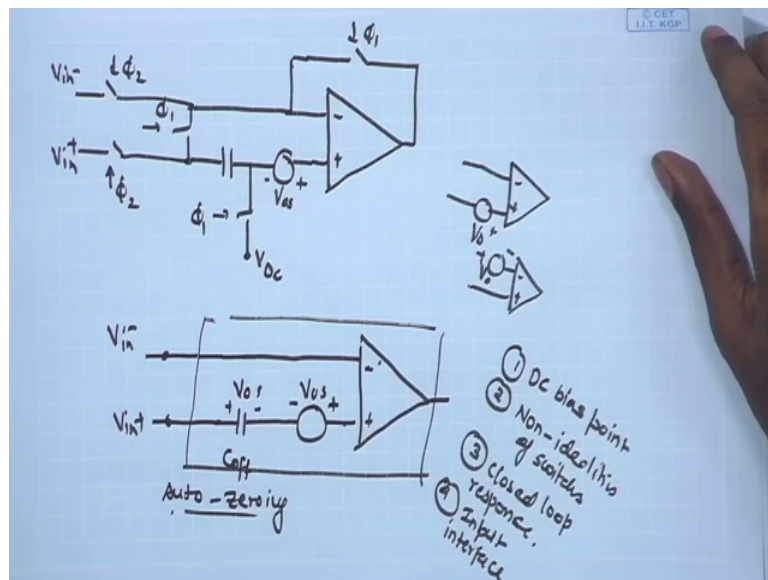 © CET
I.I.T. KGP
Φ1
Vin-
Φ2
Φ1
Vin+
Φ2
- +
Vos
-
+
Φ1
VDC
-
+
Vo +
-
+
Vin-
Vos
+ -
Vos
- +
Vin+
-
+
Coff
Auto-Zeroing
① DC bias point
② Non-idealitis
of switchs
③ Closed loop
response.
④ Input
interface